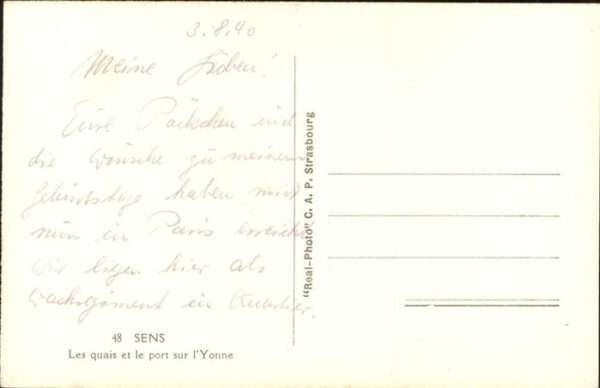 3.8.40
Meine Lieben!
Eure Päckchen und
die Wünsche zu meinem
Geburtstage haben mich
nun in Paris erreicht
Wir liegen hier als
Wachregiment in Quartier.
"Real-Photo" C. A. P. Strasbourg
48 SENS
Les quais et le port sur l'Yonne